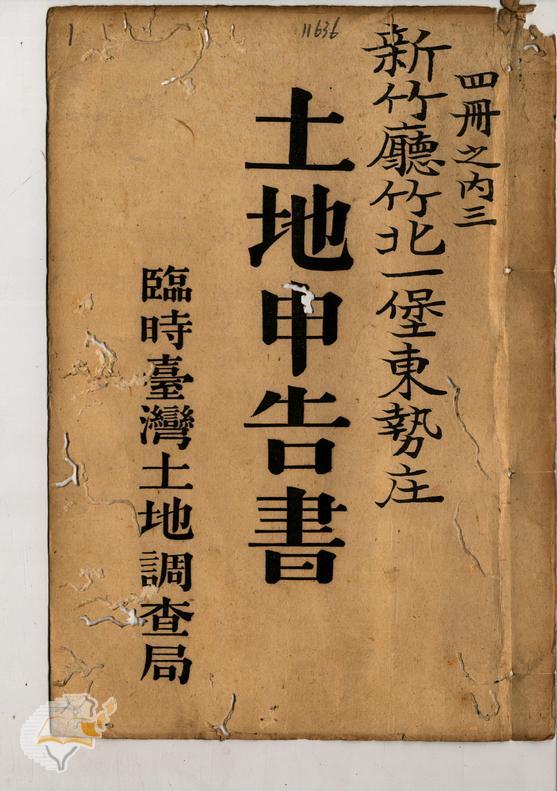 四冊之內三
新竹廳竹北一堡東勢庄
土地申告書
臨時臺灣土地調查局
11636
1